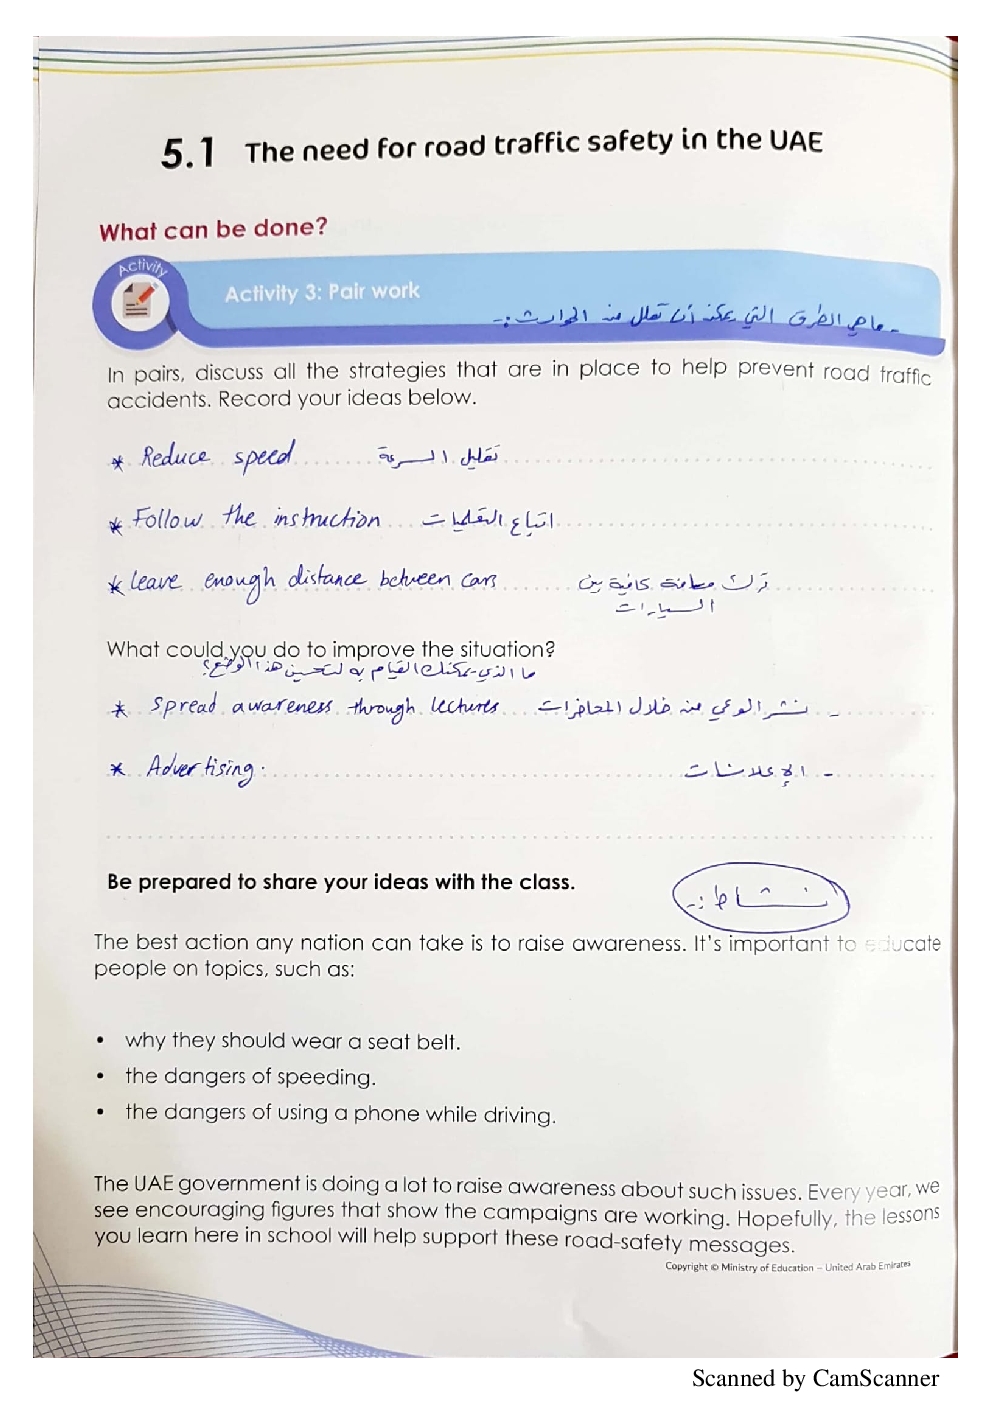 5.1 The need for road traffic safety in the UAE
What can be done?
Activity
Activity 3: Pair work
- ما هي الطرق التي يمكن أن تقلل من الحوادث :-
In pairs, discuss all the strategies that are in place to help prevent road traffic
accidents. Record your ideas below.
* Reduce speed تقليل السرعة
* Follow the instruction اتباع التعليمات
* Leave enough distance between cars ترك مسافة كافية بين
السيارات
What could you do to improve the situation?
ما الذي يمكنك القيام به لتحسين هذا الوضع؟
* Spread awareness through lectures - نشر الوعي من خلال المحاضرات
* Advertising. - الإعلانات
Be prepared to share your ideas with the class.
نشاط :-
The best action any nation can take is to raise awareness. It's important to educate
people on topics, such as:
• why they should wear a seat belt.
• the dangers of speeding.
• the dangers of using a phone while driving.
The UAE government is doing a lot to raise awareness about such issues. Every year, we
see encouraging figures that show the campaigns are working. Hopefully, the lessons
you learn here in school will help support these road-safety messages.
Copyright © Ministry of Education – United Arab Emirates
Scanned by CamScanner